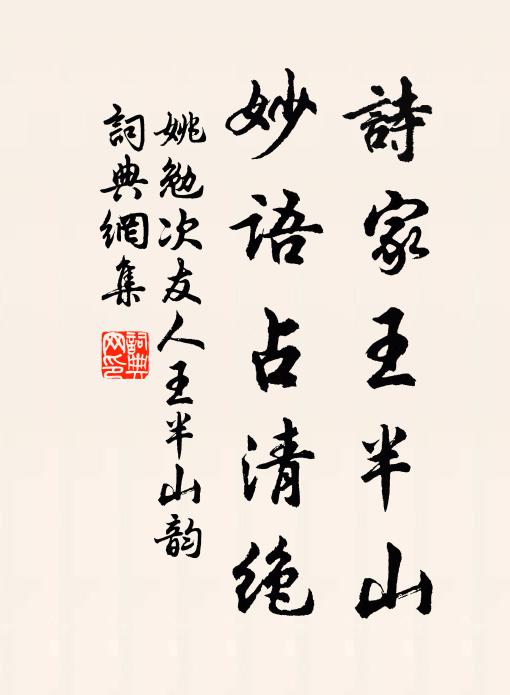 詩家王半山
妙語占清絶
姚勉次友人王半山韵
詞典網集
詞典网印